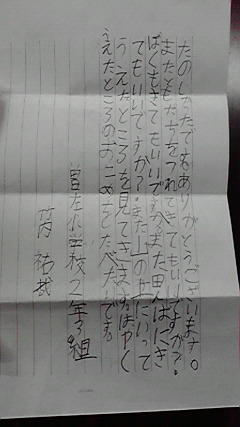 たのしかったでもありがとうございます。
またともだちをつれてきてもいいですか?
ぼくもきてもいいですか?また田んぼにき
てもいいですか?また山の上にいって
うえたところを見てきます。はやく
うえたところのおこめをしたべたいです。
曽左小学校2年3組
竹内 祐哉